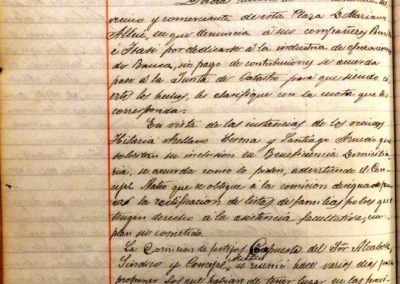 vecino y comerciante de esta Plaza D. Mariano
Allue, en que denuncia á sus compañeros
é Isasi por dedicarse á la industria de operaciones
de Banca, sin pago de contribuciones se acuerda
pase á la Junta de Catastro para que siendo ci-
erto los hechos les clasifique con la cuota que les
corresponda.
En vista de las instancias de los vecinos
Hilaria Arellano Lerma y Santiago que
solicitan su inclusion en Beneficencia Domicilia-
ria, se acuerda como lo piden, advirtiendo el Con-
cejal Mateo que se obligue á la comision designada pa-
ra la rectificacion de listas de familias pobres que
tengan derecho á la asistencia facultativa, cum-
plan su cometido.
La Comision de festejos compuesta del Sór Alcalde
Síndico y Concejal se reunió hace varios dias para
proponer los que habian de tener lugar en las